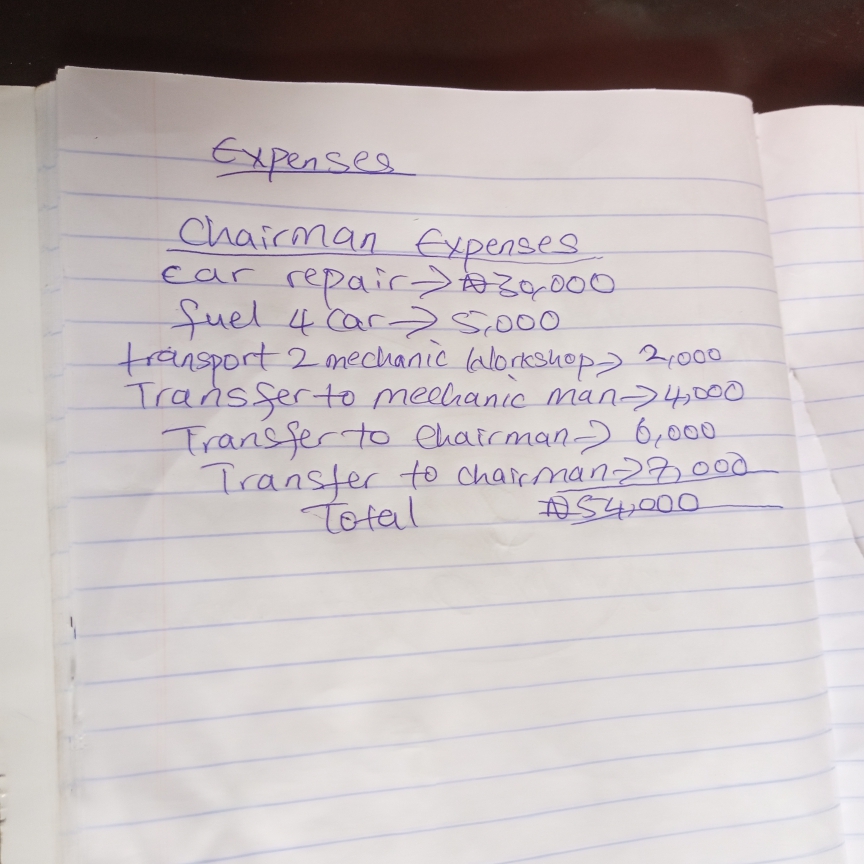 Expenses
Chairman Expenses
car repair → ₦30,000
fuel 4 car → 5,000
transport 2 mechanic Workshop → 2,000
Transfer to mechanic man → 4,000
Transfer to chairman → 6,000
Transfer to chairman → 7,000
Total ₦54,000